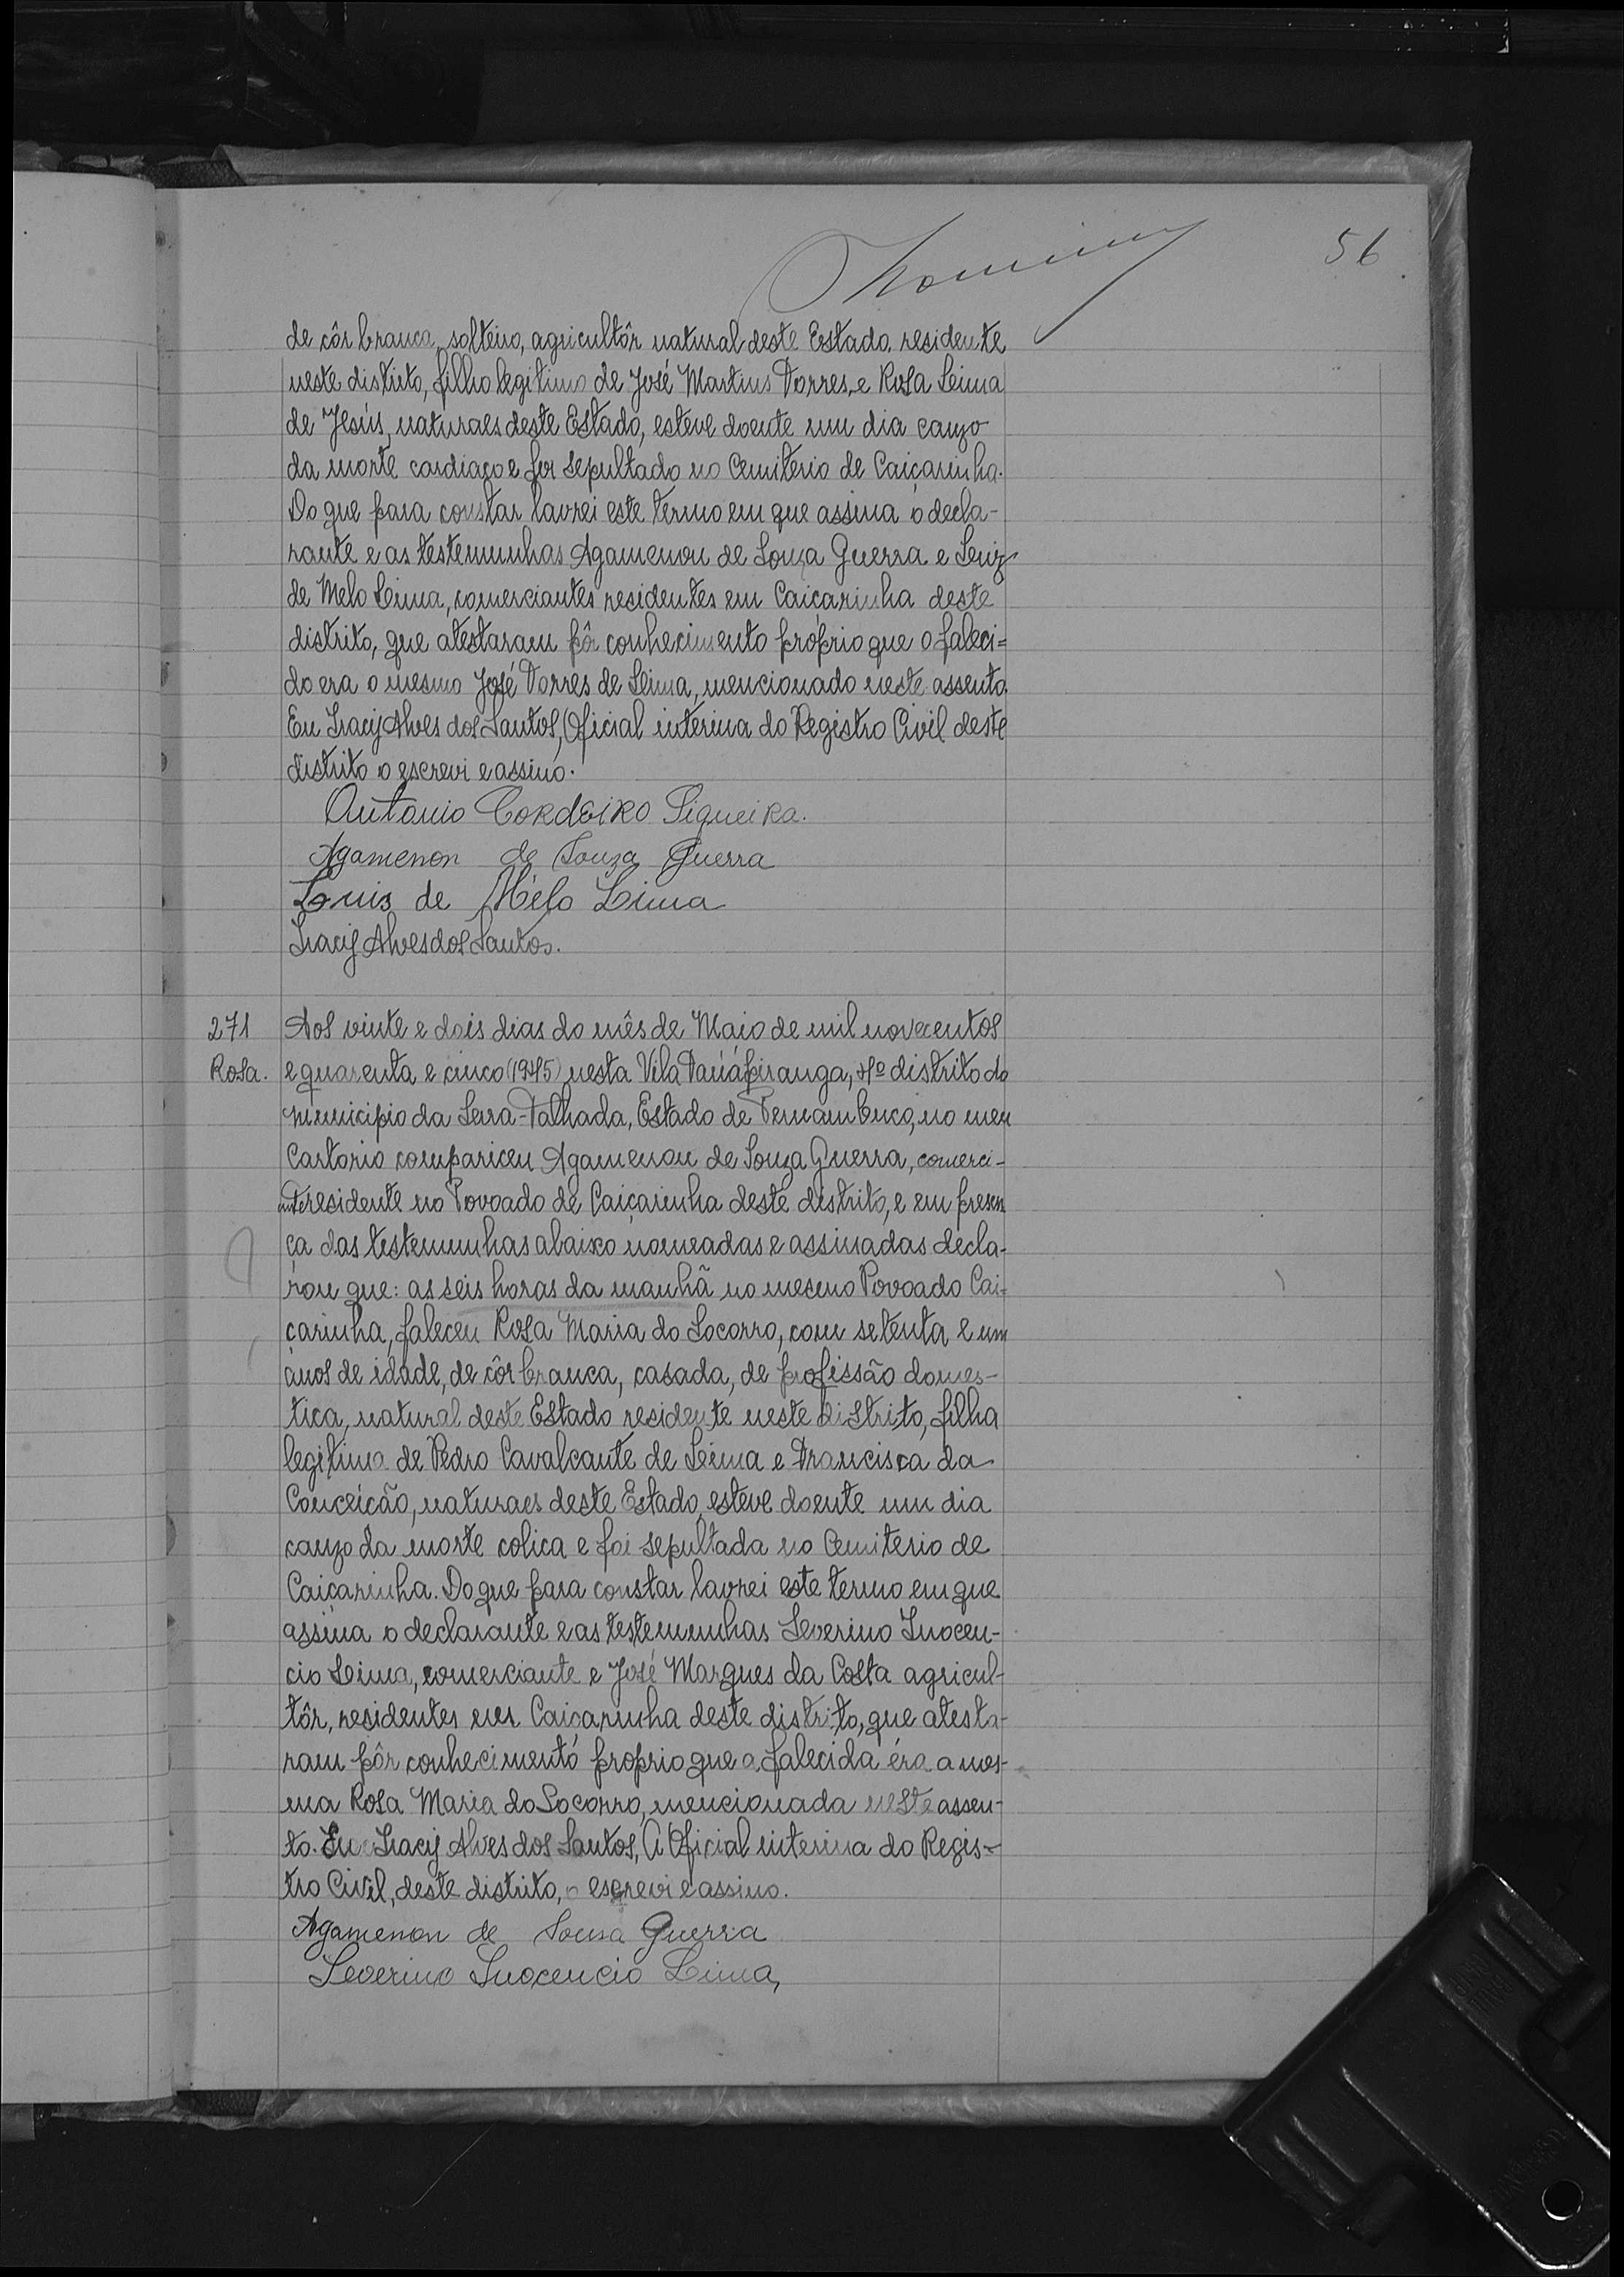 56
de côr branca, solteiro, agricultôr natural deste Estado, residente
neste distrito, filho legitimo de José Martins Torres, e Rosa Leima
de Jesús, naturaes deste Estado, esteve doente um dia cauzo
da morte cardiaco e foi sepultado no Cemiterio de Caiçarinha.
Do que para constar lavrei este termo em que assina o decla-
rante e as testemunhas Agamenon de Souza Guerra e Leuiz
de Melo Leima, comerciantes residentes em Caiçarinha deste
distrito, que atestaram pôr conhecimento próprio que o faleci=
do era o mesmo José Torres de Leima, mencionado neste assento.
Eu Iracÿ Alves dos Santos, Oficial interina do Registro Civil deste
distrito o escrevi e assino.
Antonio Cordeiro Siqueira.
Agamenon de Souza Guerra
Louis de Mélo Lima
Iracÿ Alves dos Santos.
271 Aos vinte e dois dias do mês de Maio de mil novecentos
Rosa. e quarenta e cinco (1945) nesta Vila Tauápiranga, 4º distrito do
municipio da Serra-Talhada, Estado de Pernambuco, no meu
Cartorio compariceu Agamenon de Souza Guerra, comerci-
ante residente no Povoado de Caiçarinha deste distrito, e em presen
ça das testemunhas abaixo nomeadas e assinadas decla-
rou que: as seis horas da manhã no mesmo Povoado Cai-
çarinha, faleceu Rosa Maria do Socorro, com setenta e um
anos de idade, de côr branca, casada, de profissão domes-
tica, natural deste Estado residente neste distrito, filha
legitima de Pedro Cavalcante de Leima e Francisca da
Conceicão, naturaes deste Estado, esteve doente um dia
cauzo da morte colica e foi sepultada no Cemiterio de
Caiçarinha. Do que para constar lavrei este termo em que
assina o declarante e as testemunhas Severino Inocen-
cio Leima, comerciante e José Marques da Costa agricul-
tôr, residentes em Caiçarinha deste distrito, que atesta-
ram pôr conhecimento proprio que a falecida éra a mes-
ma Rosa Maria do Socorro, mencionada neste assen-
to. Eu Iracÿ Alves dos Santos, A Oficial interina do Regis-
tro Civil, deste distrito, o escrevi e assino.
Agamenon de Sousa Guerra
Severino Inocencio Lima,